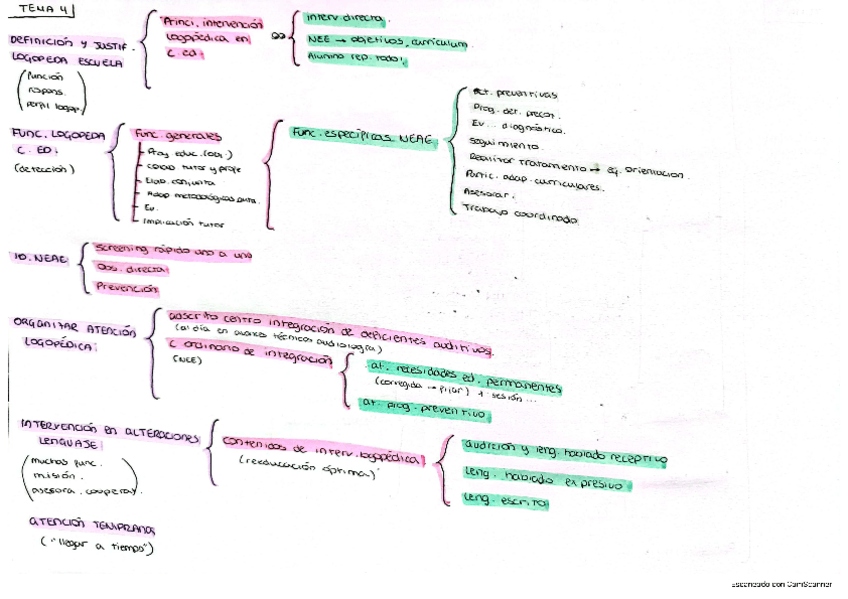 TEMA 4
DEFINICIÓN Y JUSTIF.
LOGOPEDA ESCUELA
(función
respons.
perfil logop.)
Princi. intervención
logopédica en
C. ed.
interv. directa.
NEE → objetivos, curriculum.
Alumno rep. todo!
FUNC. LOGOPEDA
C. ED:
(detección)
Func. generales
Proy. educ. (obj.)
colab. tutor y profe
Elab. conjunta
Adap metodológicas
Ev.
Implicación tutor
Func. específicas NEAE
Act. preventivas
Prog. det. precoz.
Ev. diagnóstica.
Seguimiento.
Realizar tratamiento → eq. orientacion.
Partic. adap. curriculares.
Asesorar.
Trabajo coordinado
ID. NEAE
Screening rápido uno a uno
Obs. directa
Prevención
ORGANIZAR ATENCIÓN
LOGOPÉDICA:
adscrito centro integración de deficientes auditivos.
(al día en avances técnicos audiología)
C ordinario de integración
(NEE)
at. necesidades ed. permanentes
(corregida → fijar) 1 sesión...
at. prog. preventivo
INTERVENCIÓN EN ALTERACIONES
LENGUAJE:
(muchas func.
misión.
asesora. cooperar.)
contenidos de interv. logopédica
(reeducación óptima)
audición y leng. hablado receptivo
Leng. hablado expresivo
Leng. escrito
ATENCIÓN TEMPRANA
("llegar a tiempo")
Escaneado con CamScanner